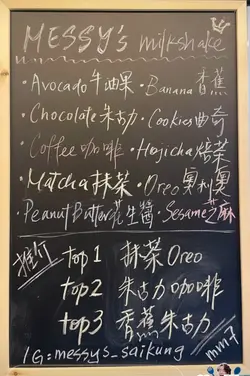 MESSY's milkshake
·Avocado 牛油果 ·Banana 香蕉
·Chocolate 朱古力 ·Cookies 曲奇
·Coffee 咖啡 ·Hojicha 焙茶
·Matcha 抹茶 ·Oreo 奧利奧
·Peanut Butter 花生醬 ·Sesame 芝麻
推介
top 1 抹茶 Oreo
top 2 朱古力咖啡
top 3 香蕉朱古力
IG:messys_saikung